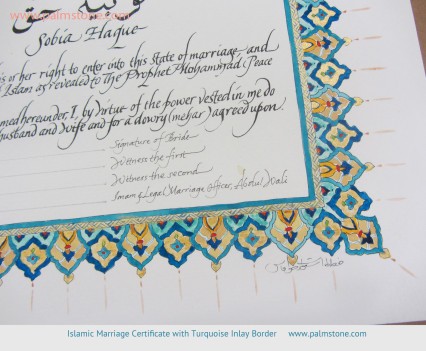 www.palmstone.com
Sobia Haque
is or her right to enter into this state of marriage, and
Islam as revealed to The Prophet Mohammad; Peace
med hereunder, I, by virtue of the power vested in me do
husband and wife and for a dowry (mehar) agreed upon.
Signature of Bride
Witness the first
Witness the second
Imam & Legal Marriage Officer, Abdul Wali
Islamic Marriage Certificate with Turquoise Inlay Border www.palmstone.com